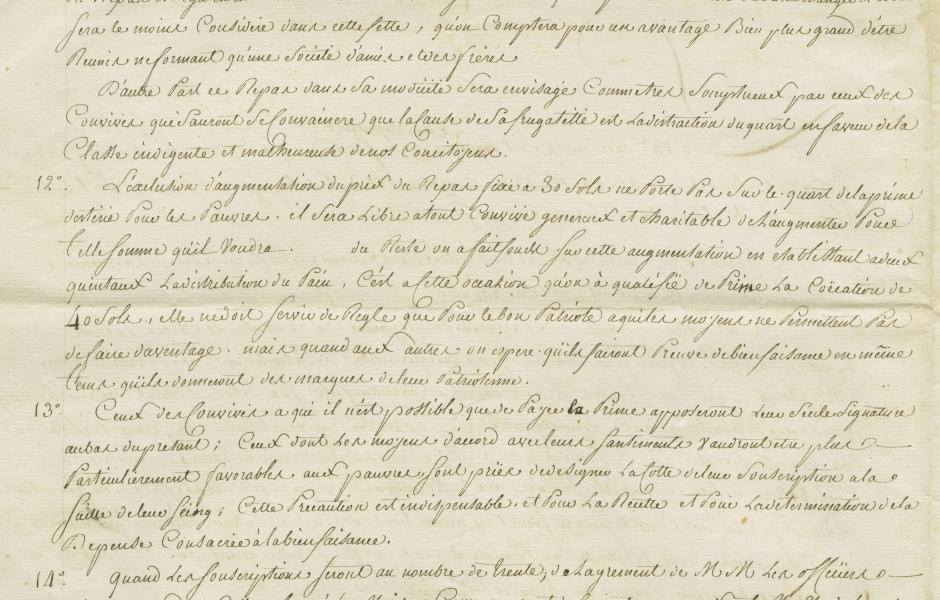 sera le moins Considéré dans cette fette, qu'on Comptera pour un avantage Bien plus grand d'être
Reunis ne formant qu'une Société d'amis et des frères
D'autre Part ce Repas dans sa modicité sera envisagé Comme tres Somptueux par ceux des
Convives qui Sauront se Convaincre que la Cause de sa frugalitté est La distraction du quart en faveur de la
Classe indigente et malheureuse de nos Concitoyens.
12°. L'exclusion d'augmentation du prix du Repas fixé a 30 Sols ne Porte Pas Sur le quart de la prime
destiné Pour les Pauvres. il Sera Libre a tout Convive genereux et charitable de L'augmenter Pour
telle somme qu'il Voudra. du Reste on a fait fonds sur cette augmentation en etablissant a deux
quintaux La distribution du Pain, C'est a cette occasion qu'on à qualifié de Prime La Cotisation de
40 Sols, elle ne doit servir de Regle que Pour le bon Patriote a qui les moyens ne Permettent Pas
de faire d'aventage. mais quand aux autres on espere qu'ils fairont Preuve de bienfaisance en même
tems qu'ils donneront des marques de leur Patriotisme.
13°. Ceux des Convives a qui il n'est possible que de Payer la Prime apposeront Leur Seule Signature
au bas du present; Ceux dont Les moyens d'accord avec leurs santiments Vaudront etre plus
Particulierement favorables aux pauvres sont priés de designer La Cotte de leur Souscription a la
suitte de leur Seing; Cette Precaution est indispensable et Pour La Recette et Pour La determination de la
Depense Consacrée à la bienfaisance.
14°. quand Les Souscriptions seront au nombre de trente, de L'agrement de M M Les officiers